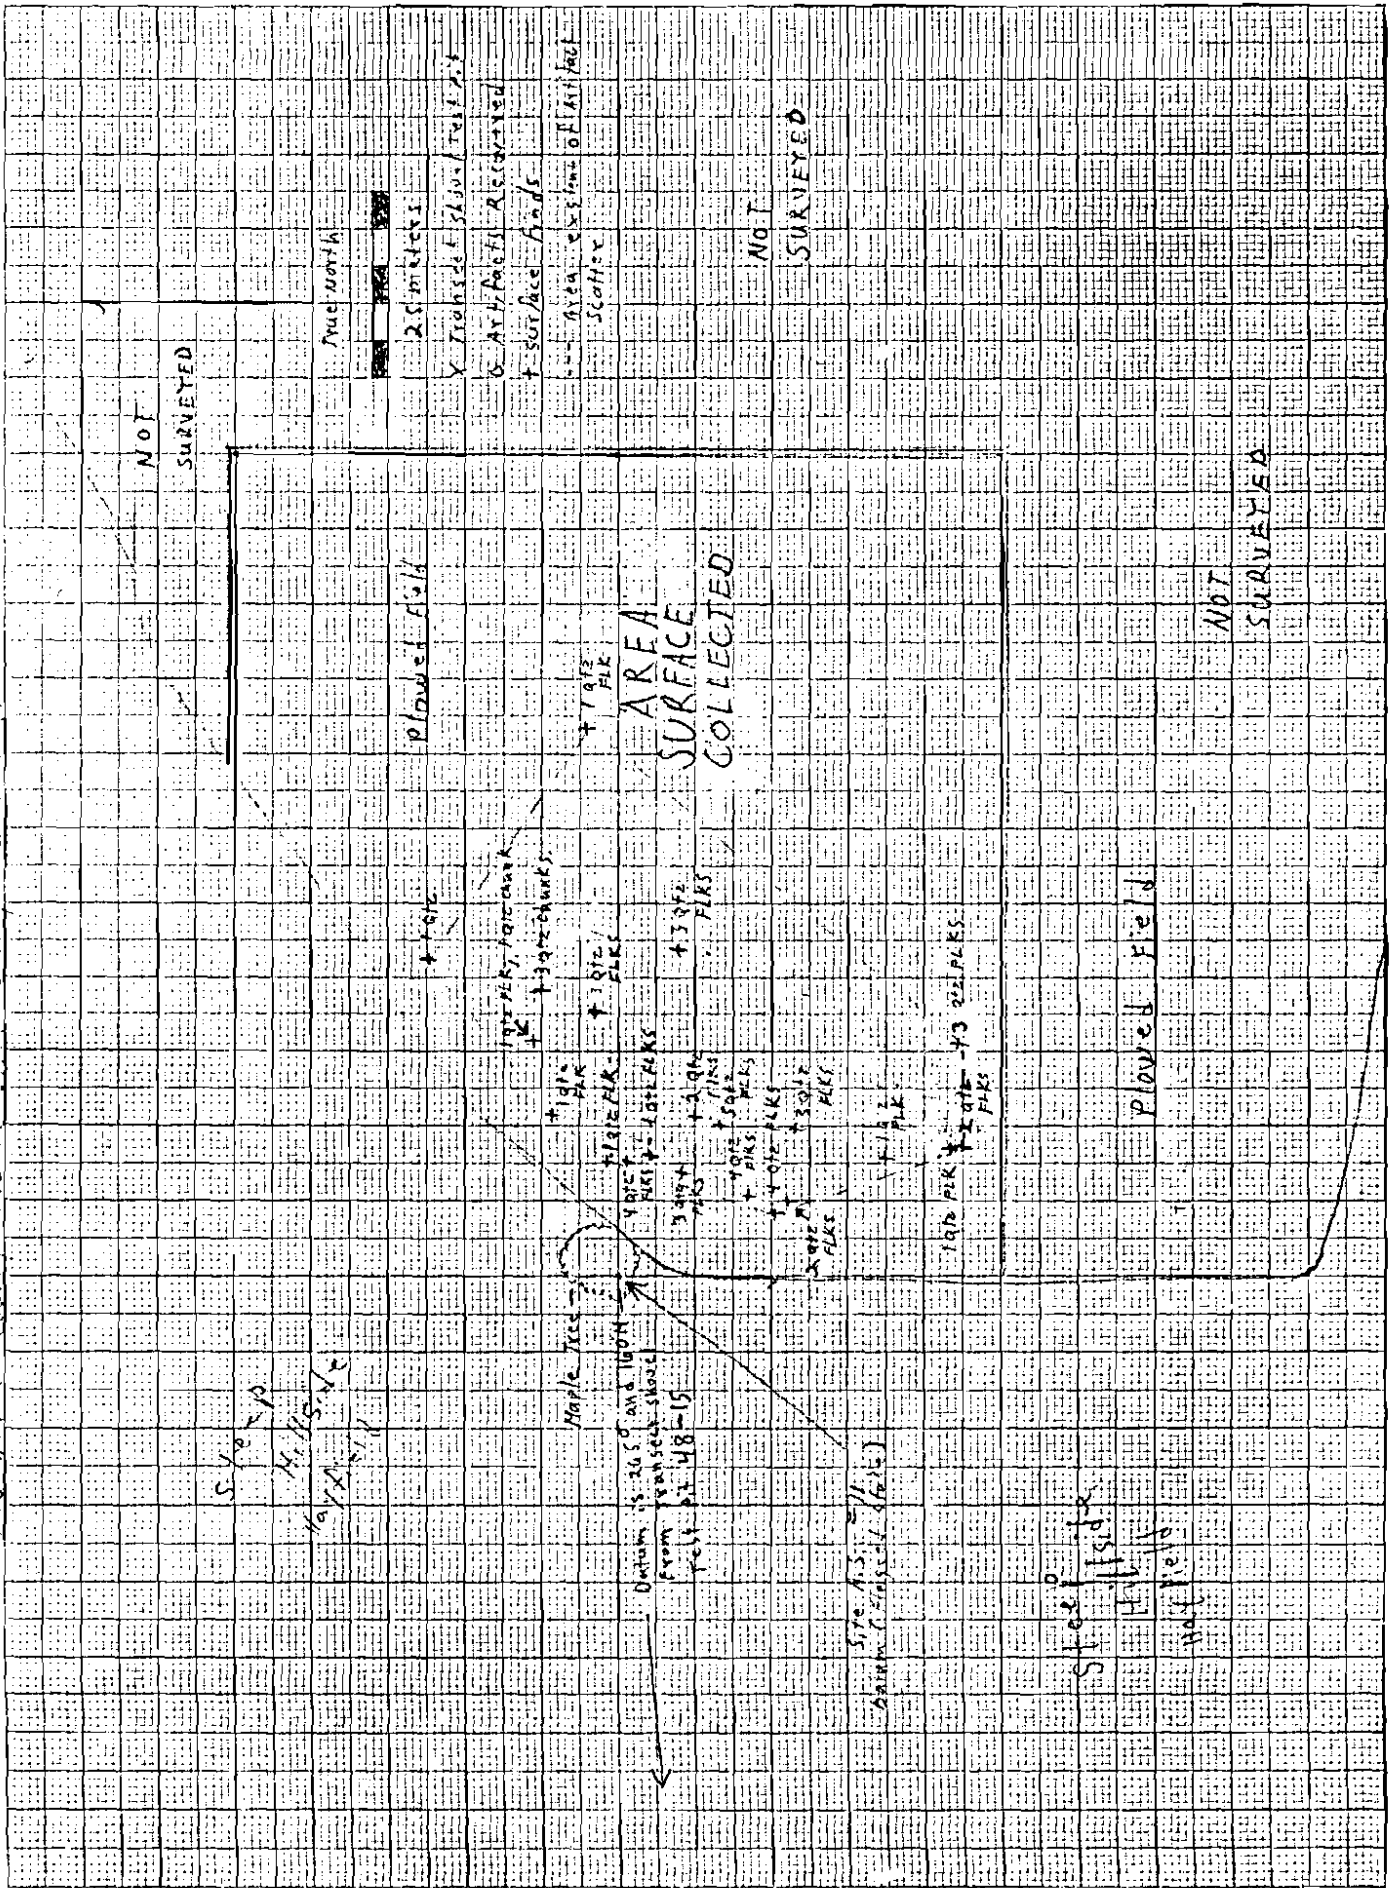 NOT
SURVEYED
True North
25 meters
X Transect Shovel Test Pit
O Artifacts Recovered
+ Surface Finds
--- Area extent of Artifact
Scatter
NOT
SURVEYED
Plowed Field
+ 1 qtz
FLK
AREA
SURFACE
COLLECTED
NOT
SURVEYED
+ 1 qtz
1 qtz FLK, 1 qtz chunk
+ 3 qtz chunks
+ 3 qtz
FLKS
+ 3 qtz
FLKS
+ 1 qtz
FLK
+ 1 qtz FLK
4 qtz +
FLKS
+ - 1 qtz FLKS
3 qtz +
FLKS
+ 2 qtz
FLKS
+ 5 qtz
FLKS
4 qtz
FLKS
+ 4 qtz FLKS
+ 3 qtz
FLKS
2 qtz
FLKS
+ 1 qtz
FLK
1 qtz FLK +
+ 2 qtz
FLKS
+3 qtz FLKS
Plowed Field
Maple Tree
Datum is 265° and 160M
From Transect Shovel
Test Pit 48-15
Site A.S. 
Datum
Steep
Hillside
Hayfield
Steep
Hillside
Hayfield